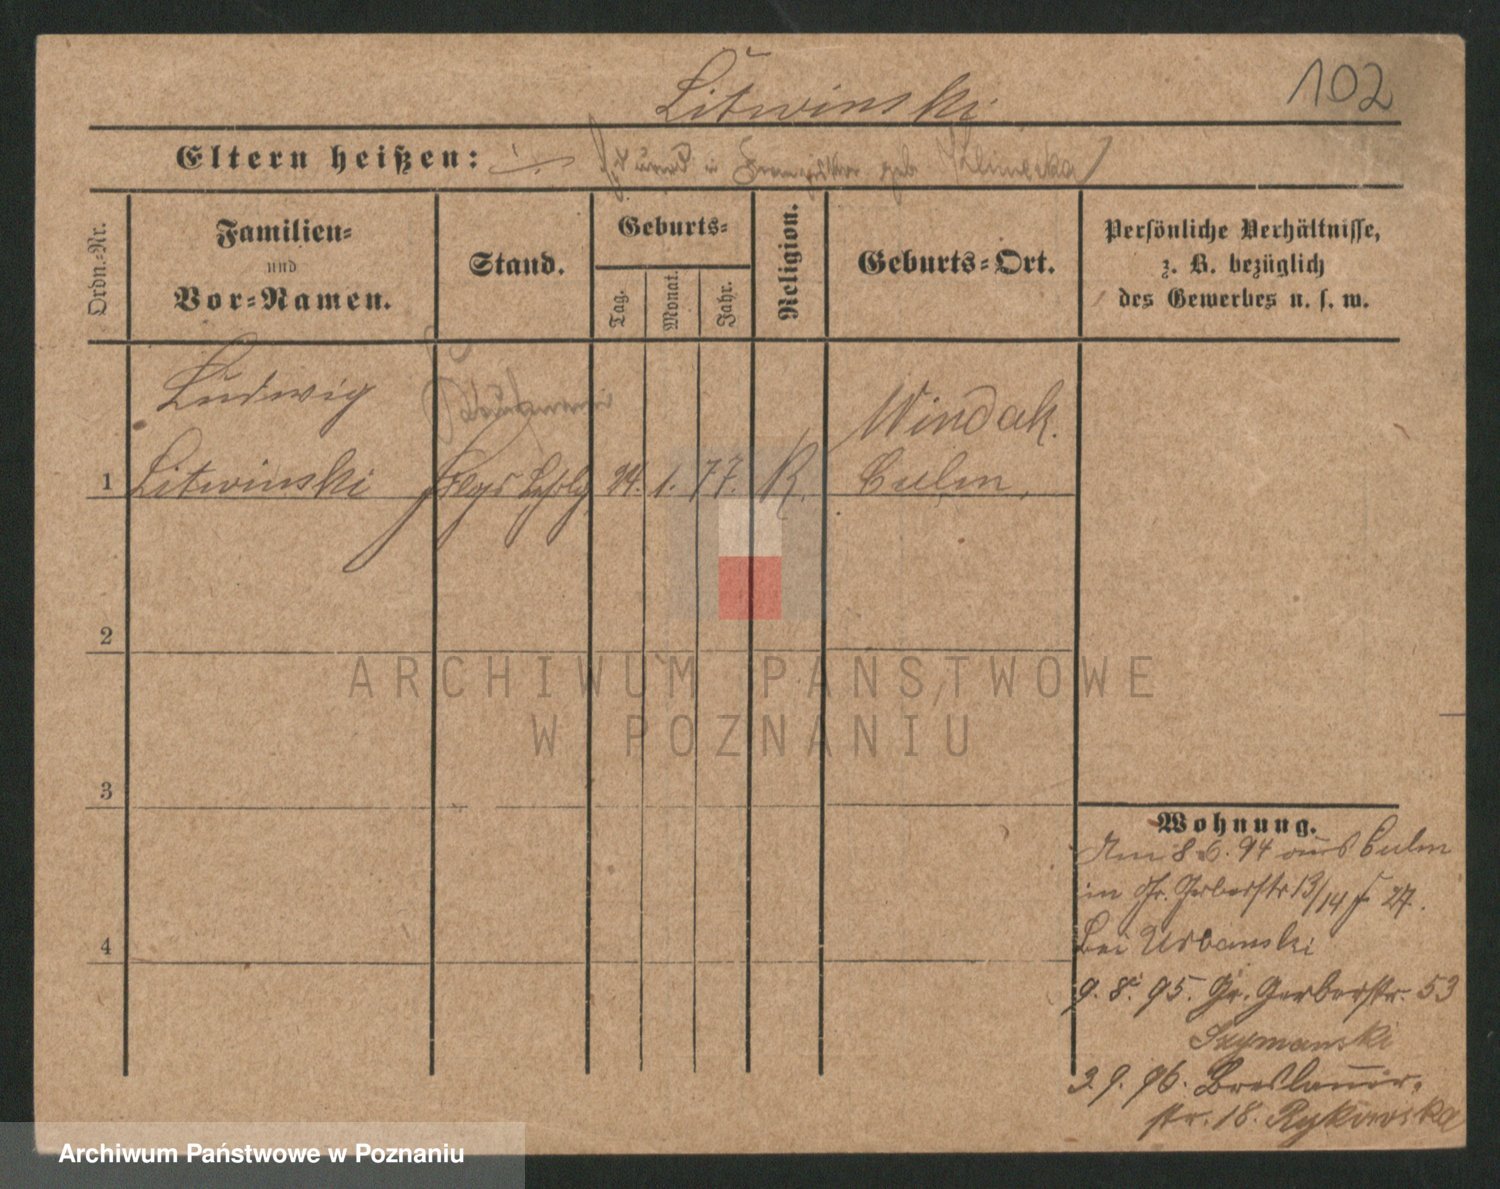 Litwinski
102
Eltern heißen: geb
Ordn.-Nr.
Familien-
und
Vor-Namen.
Stand.
Geburts-
Tag.
Monat.
Jahr.
Religion.
Geburts-Ort.
Persönliche Verhältnisse,
z. B. bezüglich
des Gewerbes u. s. w.
Ludwig
Windak.
1 Litwinski 24. 1. 77. R. Culm.
2
ARCHIWUM PAŃSTWOWE
W POZNANIU
3
Wohnung.
Am 8.6.94 aus Culm
in Gr. Gerberstr 13/14 27.
4
bei Urbanski
9.8.95. Gr. Gerberstr. 53
Szymanski
3.9.96. Breslauer-
str. 18. Rykowska
Archiwum Państwowe w Poznaniu